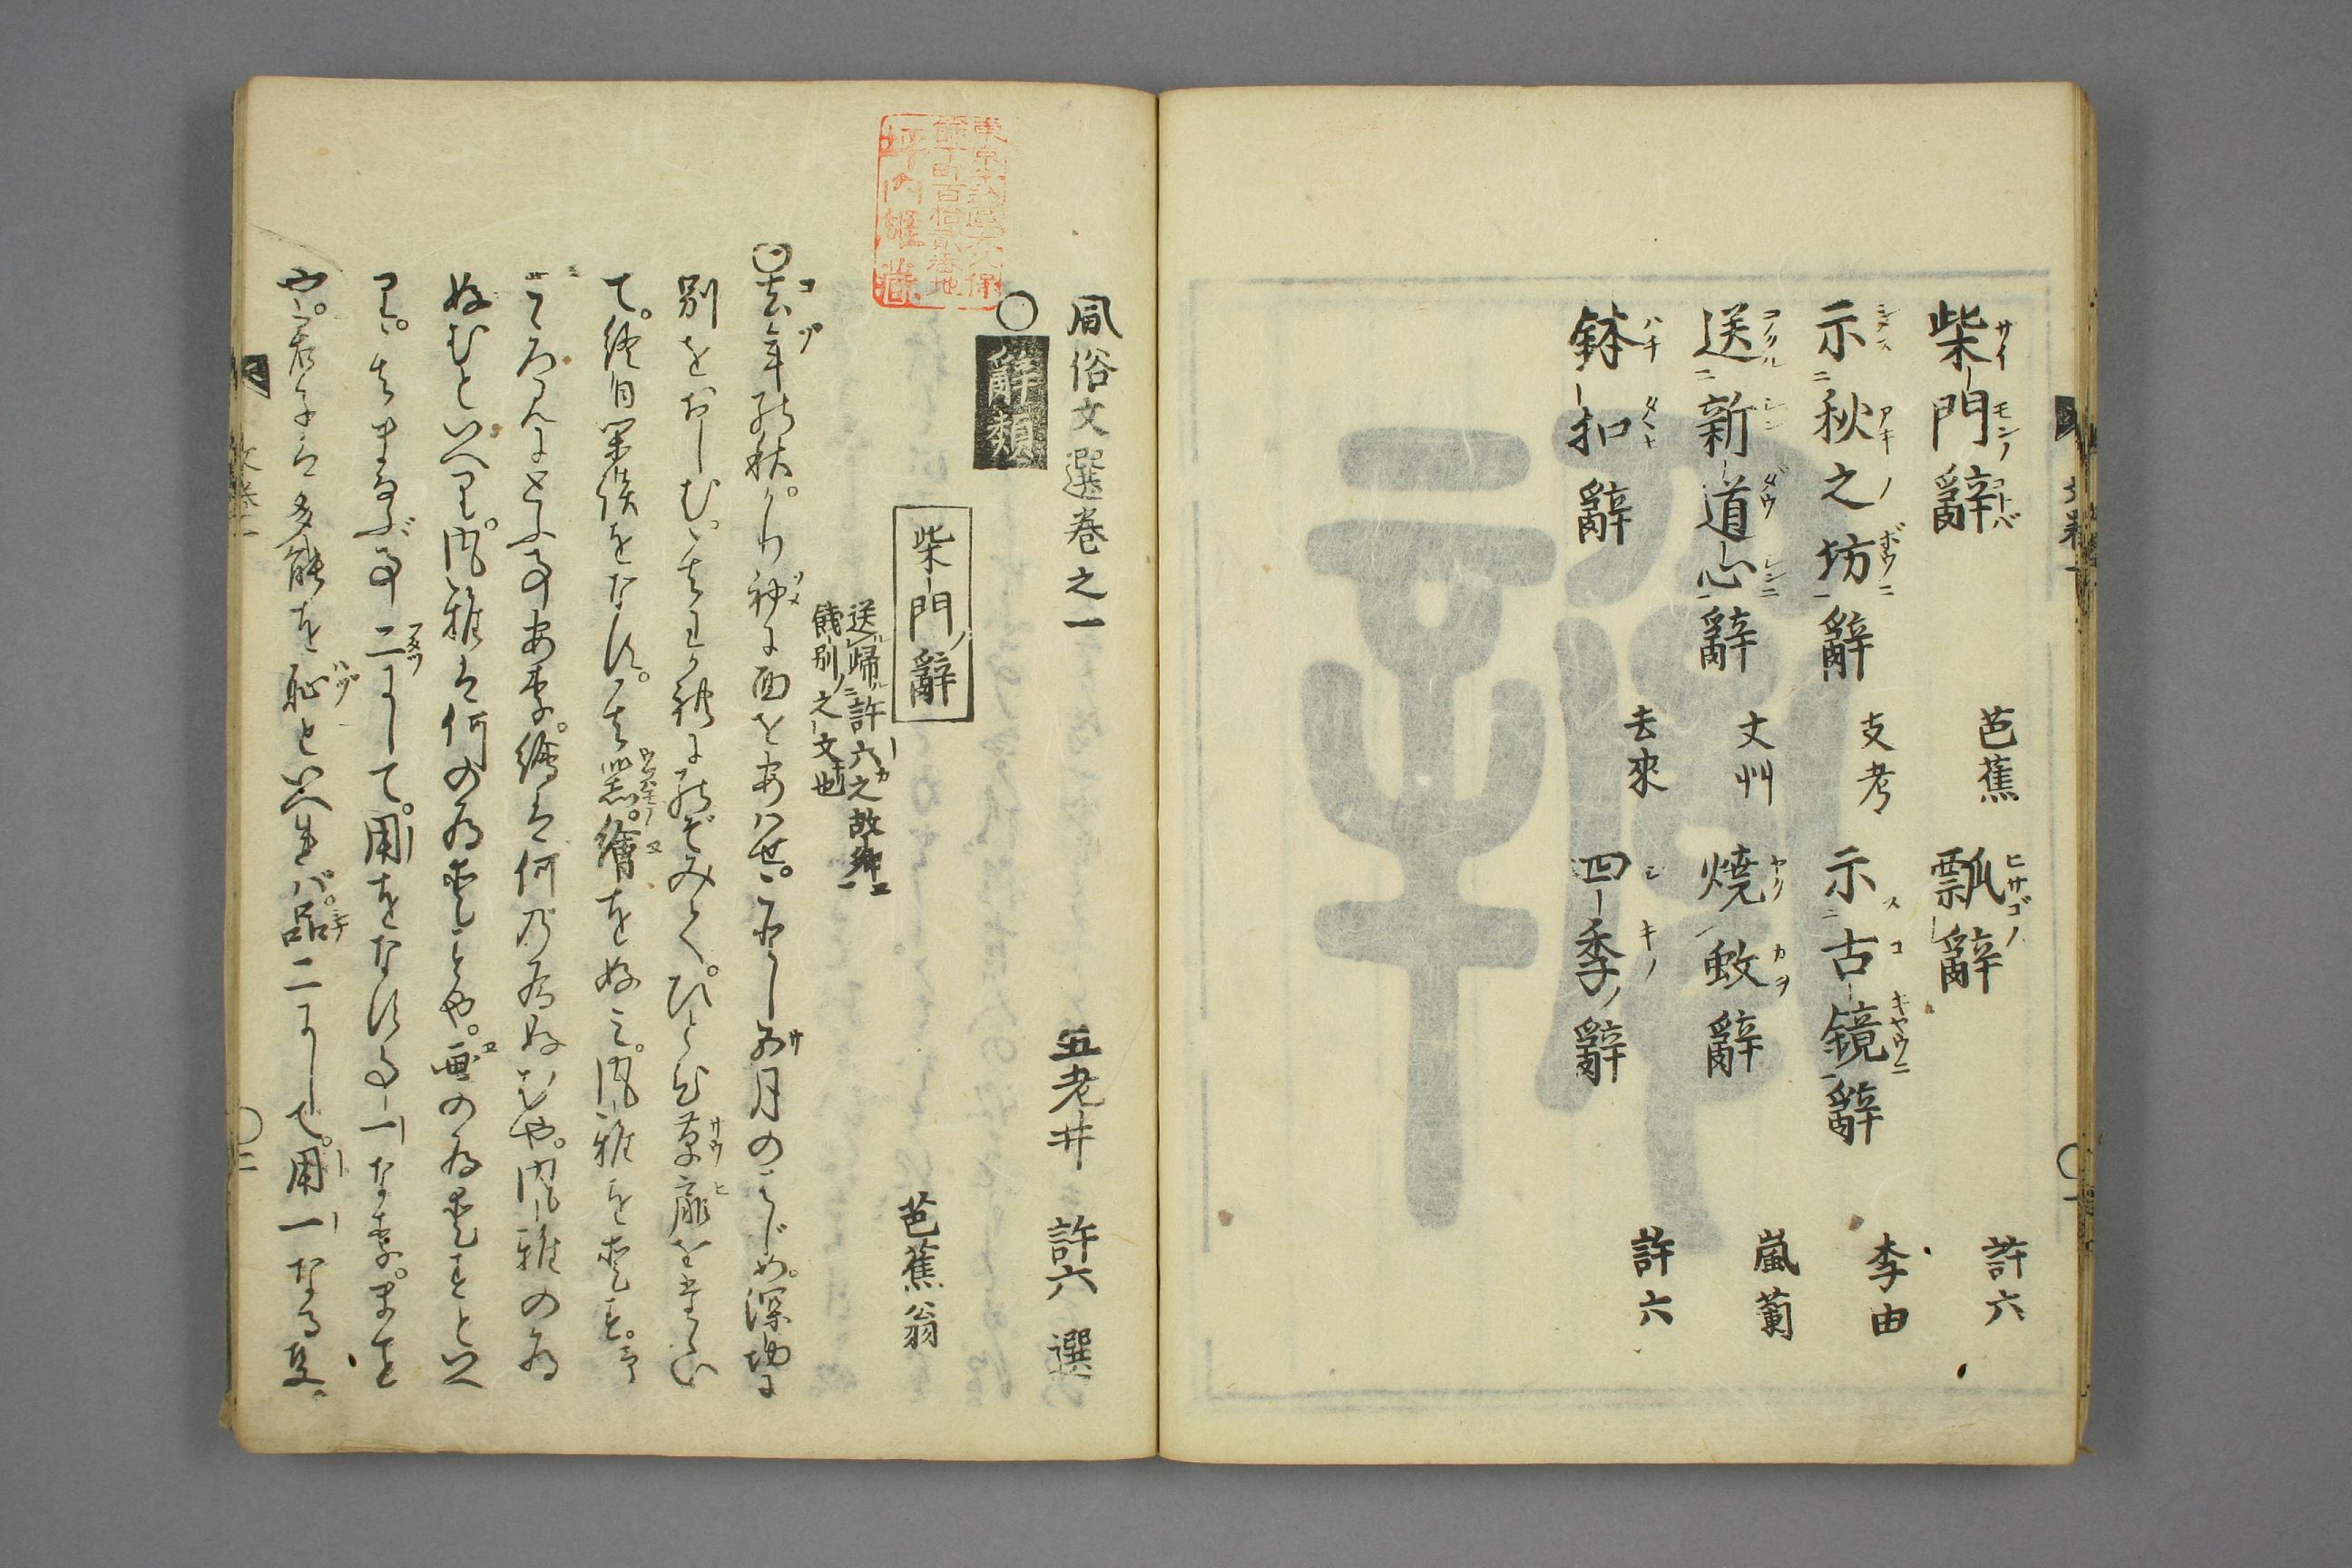 柴門辭 芭蕉 瓢辭 許六
示秋之坊辭 支考 示古鏡辭 李由
送新道心辭 丈艸 燒蚊辭 嵐蘭
鉢扣辭 去來 四季ノ辭 許六
風俗文選巻之一 五老井 許六 選
○辭類
柴門ノ辭 芭蕉翁
送歸許六之故郷
餞別之文也
去年の秋。かり初に面をあハせ。ことし五月のはじめ。深切に
別をおしむ。其わかれにのぞみて。ひとひ草扉をたゝい
て。終日閑談をなす。其器。繪をこのむ。風雅を愛す。予
こゝろみにとふ事あり。繪は何の為このむや。風雅の為
このむといへり。風雅は何の為愛すや。画の為愛すといへ
り。其まなぶ事二にして。用をなす事一なり。まこと
や。君子は多能を恥といへれバ。品二にして。用一なる事。